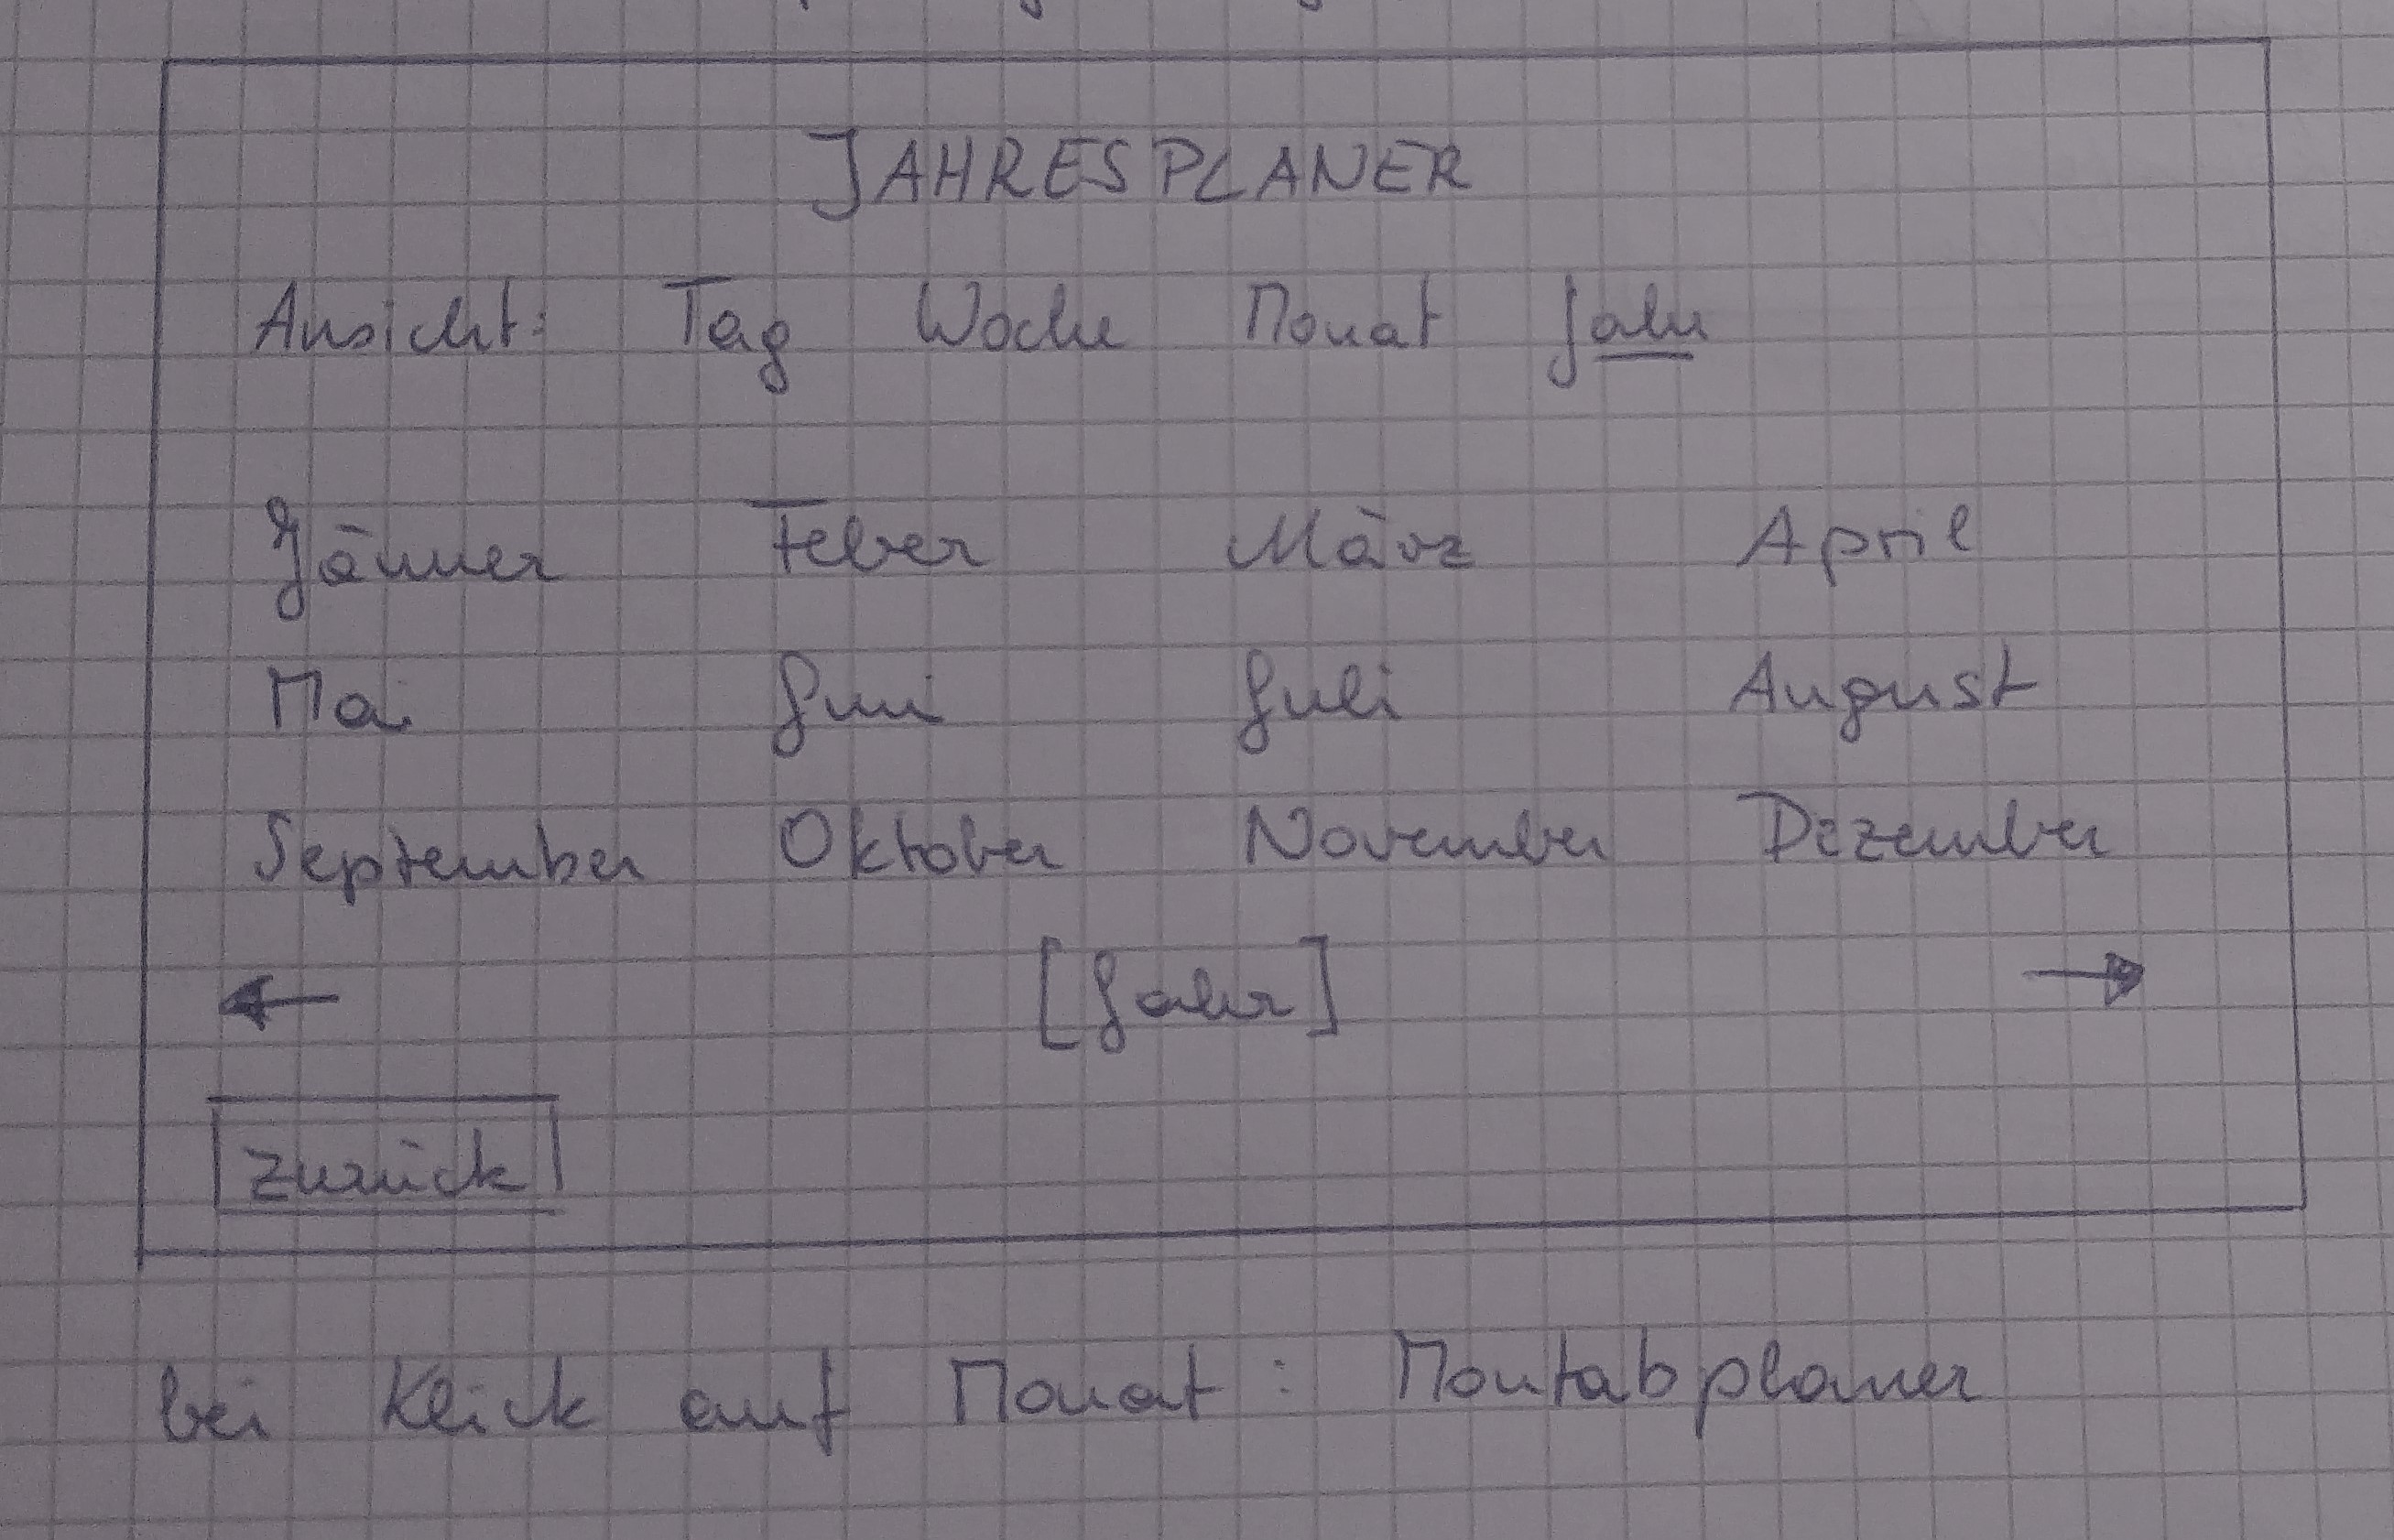 JAHRESPLANER
Ansicht: Tag Woche Monat Jahr
Jänner Feber März April
Mai Juni Juli August
September Oktober November Dezember
← [Jahr] →
zurück
bei Klick auf Monat: Montabplaner